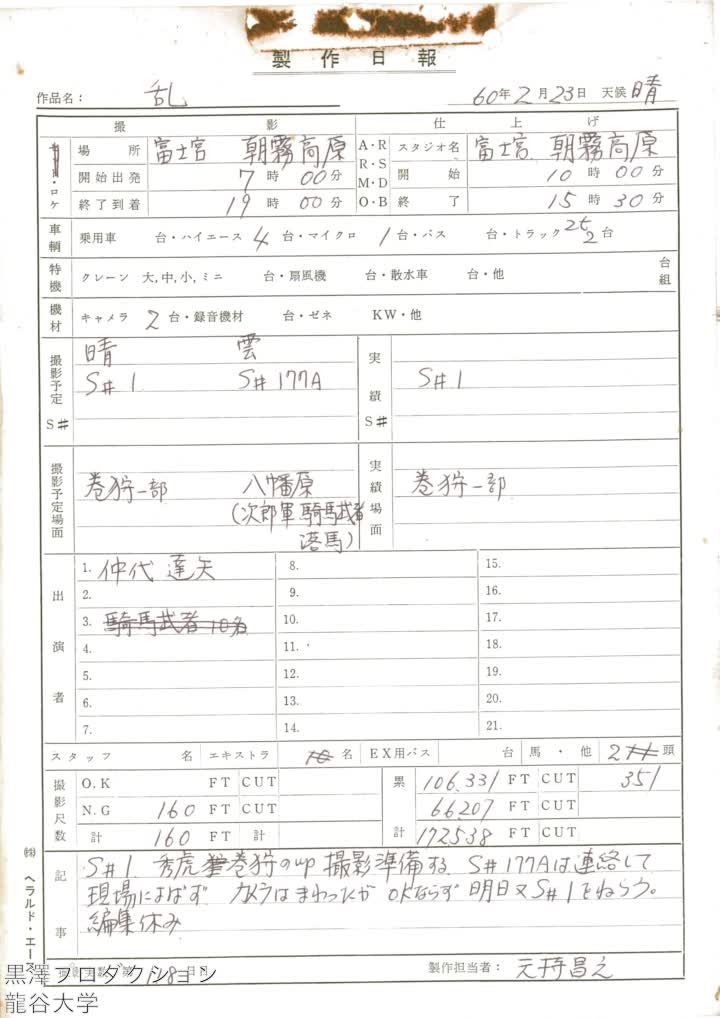 製作日報
作品名: 乱 60年2月23日 天候 晴
撮影 仕上げ
・ロケ 場所 富士宮 朝霧高原 A・R R・S M・D O・B スタジオ名 富士宮 朝霧高原
開始出発 7時00分 開始 10時00分
終了到着 19時00分 終了 15時30分
車輌 乗用車 台・ハイエース 4台・マイクロ 1台・バス 台・トラック 2t 2台
特機 クレーン 大,中,小,ミニ 台・扇風機 台・散水車 台・他 台組
機材 キャメラ 2台・録音機材 台・ゼネ KW・他
撮影予定 S# 晴 雲 実績 S#
S#1 S#177A S#1
撮影予定場面 巻狩一部 八幡原 実績場面 巻狩一部
(次郎軍 騎馬武者
落馬)
出演者
1. 仲代達矢 8. 15.
2. 9. 16.
3. 騎馬武者10名 10. 17.
4. 11. 18.
5. 12. 19.
6. 13. 20.
7. 14. 21.
スタッフ 名 エキストラ 10名 EX用バス 台 馬・他 頭
撮影尺数 O.K FT CUT 累 106,331 FT CUT 351
N.G 160 FT CUT 66207 FT CUT
計 160 FT 計 計 172538 FT CUT
記事 S#1 秀虎 巻狩のup 撮影準備する。S#177Aは連絡して
現場によばず カメラはまわったが OKならず 明日又S#1をねらう。
編集休み
撮影実数 第118日目 製作担当者: 元持昌之
㈱ヘラルド・エース
黒澤プロダクション
龍谷大学